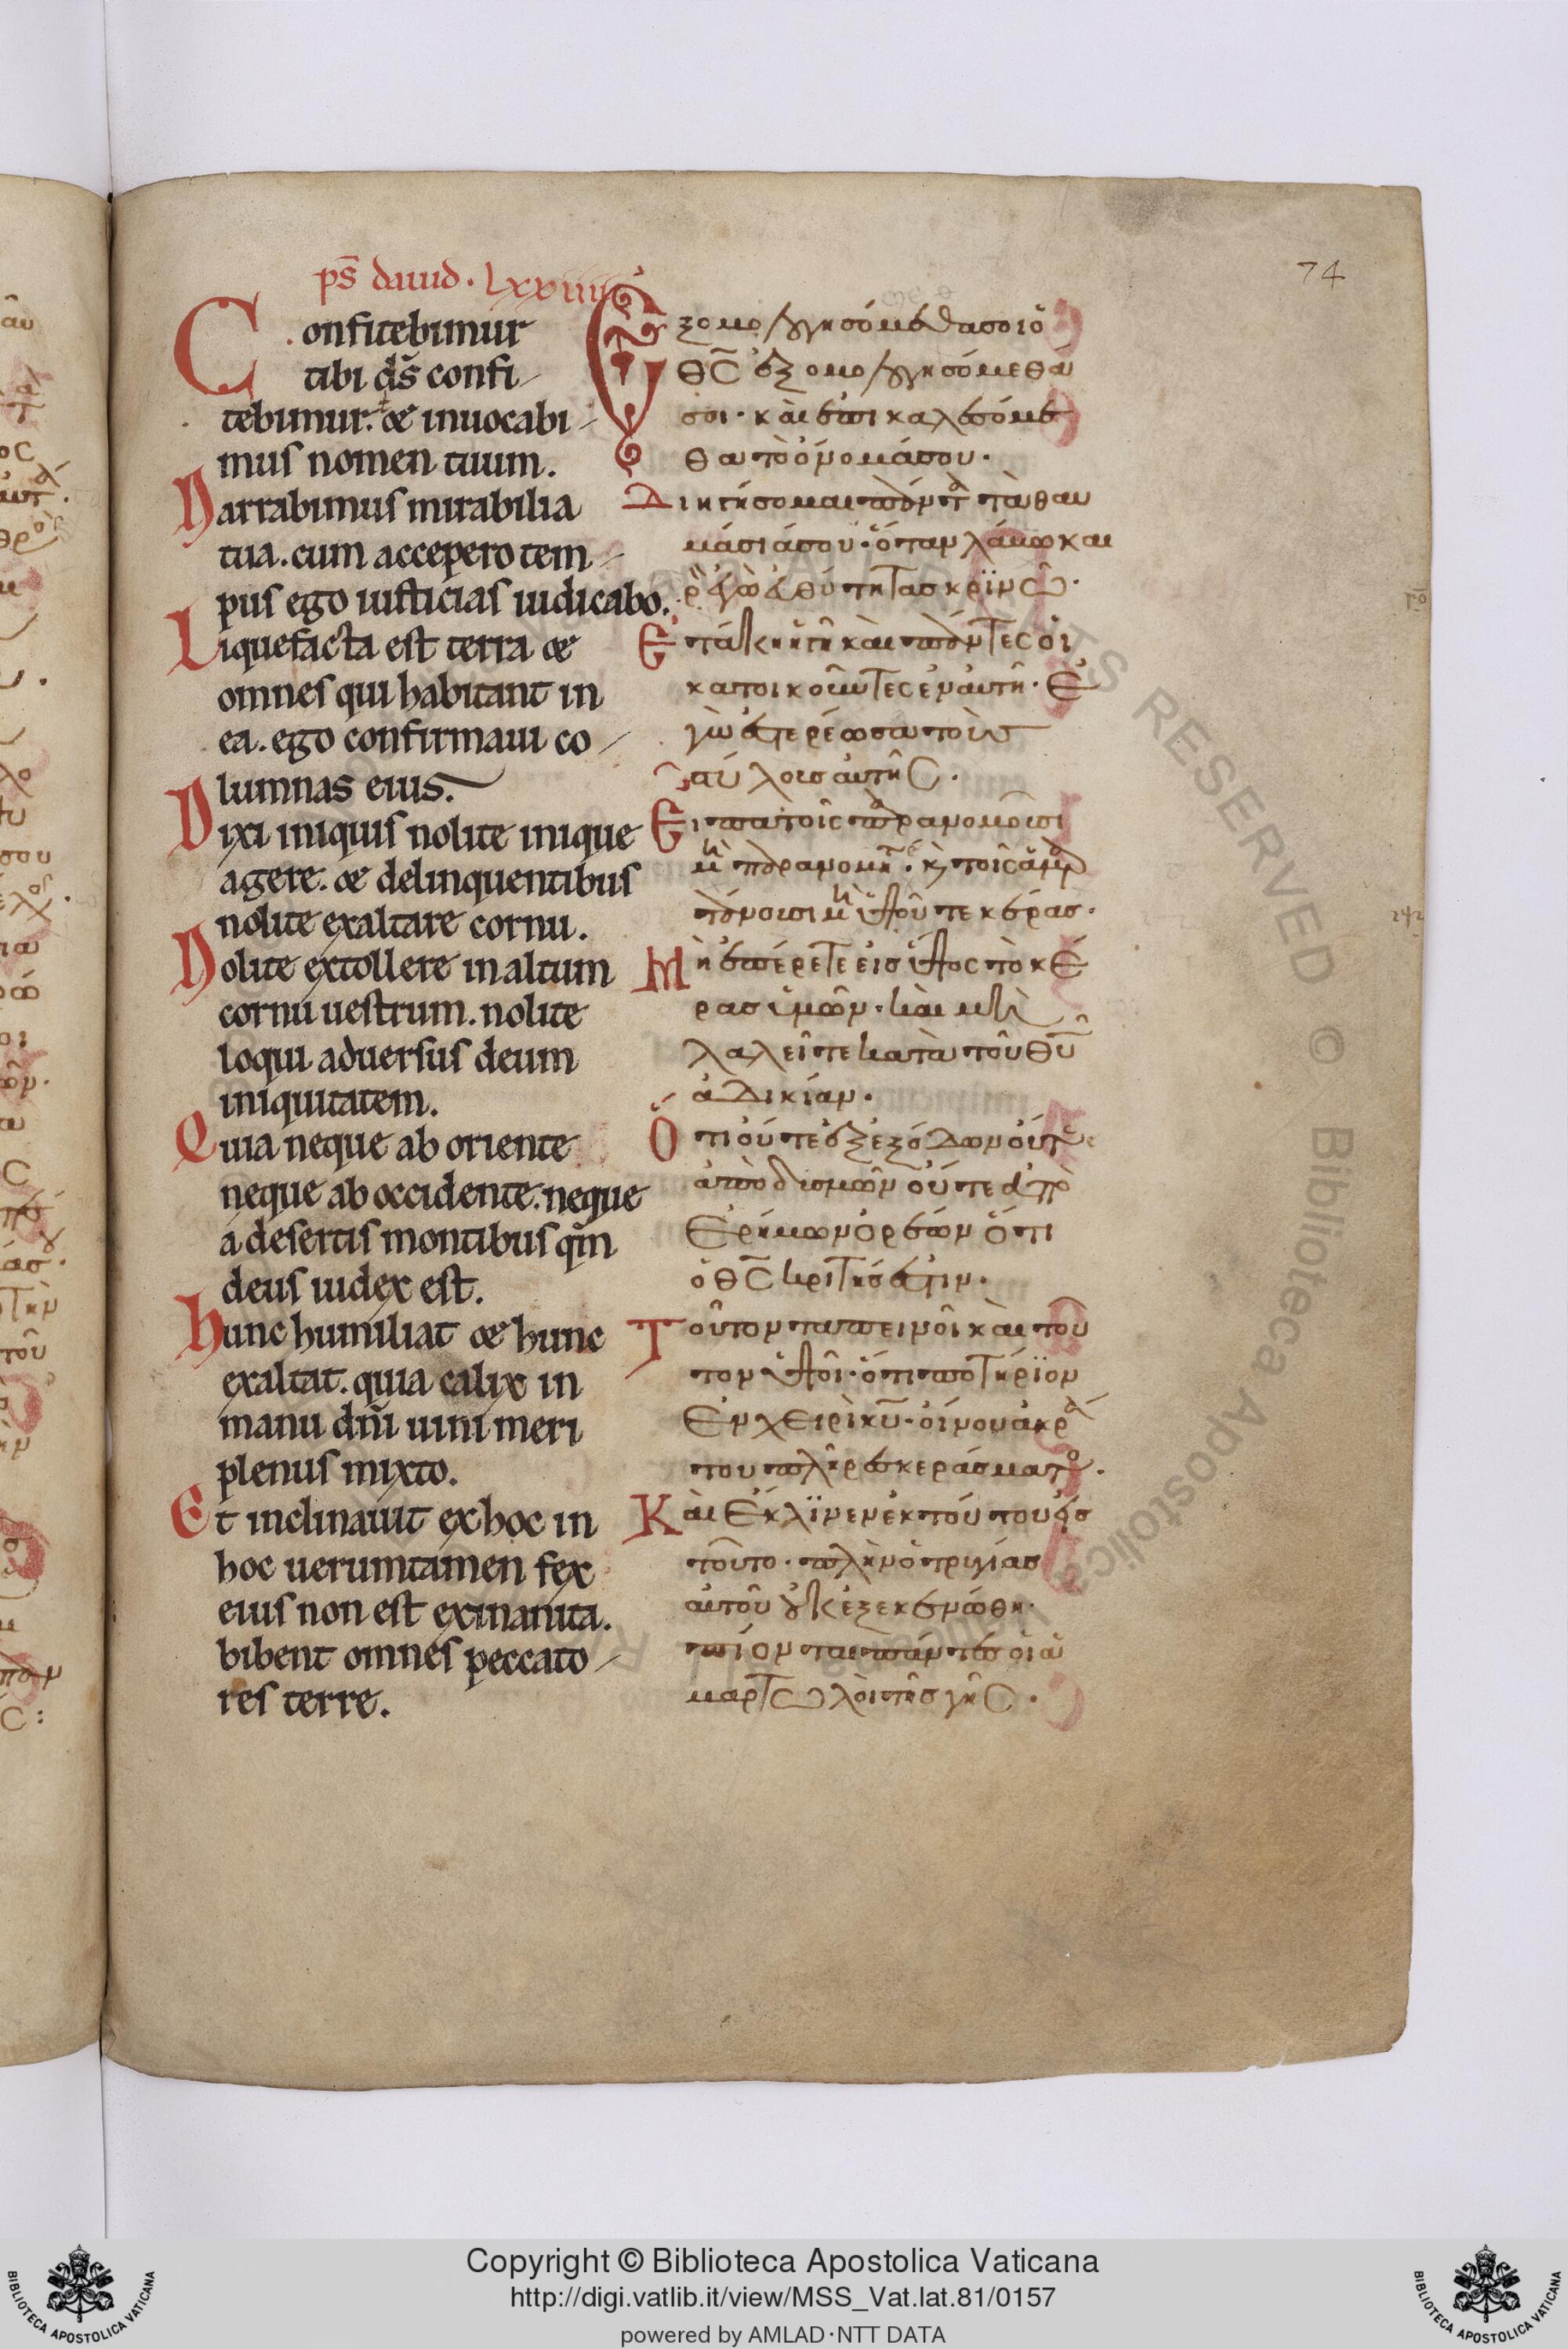 ps̄ dauid. lxxiiii
74
Confitebimur
tibi ds̄ confi
tebimur. & inuocabi
mus nomen tuum.
Narrabimus mirabilia
tua. cum accepero tem
pus ego iusticias iudicabo.
Liquefacta est terra &
omnes qui habitant in
ea. ego confirmaui co
lumnas eius.
Dixi iniquis nolite inique
agere. & delinquentibus
nolite exaltare cornu.
Nolite extollere in altum
cornu uestrum. nolite
loqui aduersus deum
iniquitatem.
Quia neque ab oriente
neque ab occidente. neque
a desertis montibus qm̄
deus iudex est.
hunc humiliat & hunc
exaltat. quia calix in
manu dn̄i uini meri
plenus mixto.
Et inclinauit ex hoc in
hoc uerumtamen fex
eius non est exinanita.
bibent omnes peccato
res terre.
Ἐξομολογησόμεθα σοι ὁ
θς̄ ἐξομολογησόμεθά
σοι· καὶ ἐπικαλεσόμε
θα τὸ ὄνομά σου.
Διηγήσομαι πάντα τὰ θαυ
μάσιά σου· ὅταν λάβω και
ρὸ ἐγὼ εὐθύτητας κρϊνῶ.
Ἐτάκη ἡ γῆ καὶ πάντες οἱ
κατοικοῦντες ἐν αὐτῆ. Ἐ
γὼ ἐστερέωσα τοὺς
στύλους αὐτῆς.
Εἶπα τοῖς παρανομοῦσι
μὴ παρανομεῖτε. κὶ τοῖς ἁμαρ
τάνουσι μὴ ὑψοῦτε κέρας.
Μὴ ἐπέρετε εἰς ὕψος τὸ κέ
ρας ὑμῶν. καὶ μὴ
λαλεῖτε κατὰ τοῦ θῦ
ἀδικίαν.
Ὅτι οὔτε ἐξ ἐξόδων οὔτε
ἀπὸ δυσμῶν οὔτε ἀπὸ
ἐρήμων ὀρέων ὅτι
ὁ θς̄ κριτής ἐστιν.
Τοῦτον ταπεινοῖ καὶ τοῦ
τον ὑψοῖ. ὅτι ποτήρϊον
ἐν χειρὶ κῡ. οἴνου ἀκρά
του πλῆρες κεράσματος.
Καὶ ἔκλϊνεν ἐκ τούτου εἰς
τοῦτο. πλὴν ὁ τρυγίας
αὐτοῦ οὐκ ἐξεκενώθη.
πίονται πάντες οἱ ἁ
μαρτωλοὶ τῆς γῆς.
ALL RIGHTS RESERVED © Biblioteca Apostolica
BIBLIOTECA APOSTOLICA VATICANA
Copyright © Biblioteca Apostolica Vaticana
http://digi.vatlib.it/view/MSS_Vat.lat.81/0157
powered by AMLAD·NTT DATA
BIBLIOTECA APOSTOLICA VATICANA